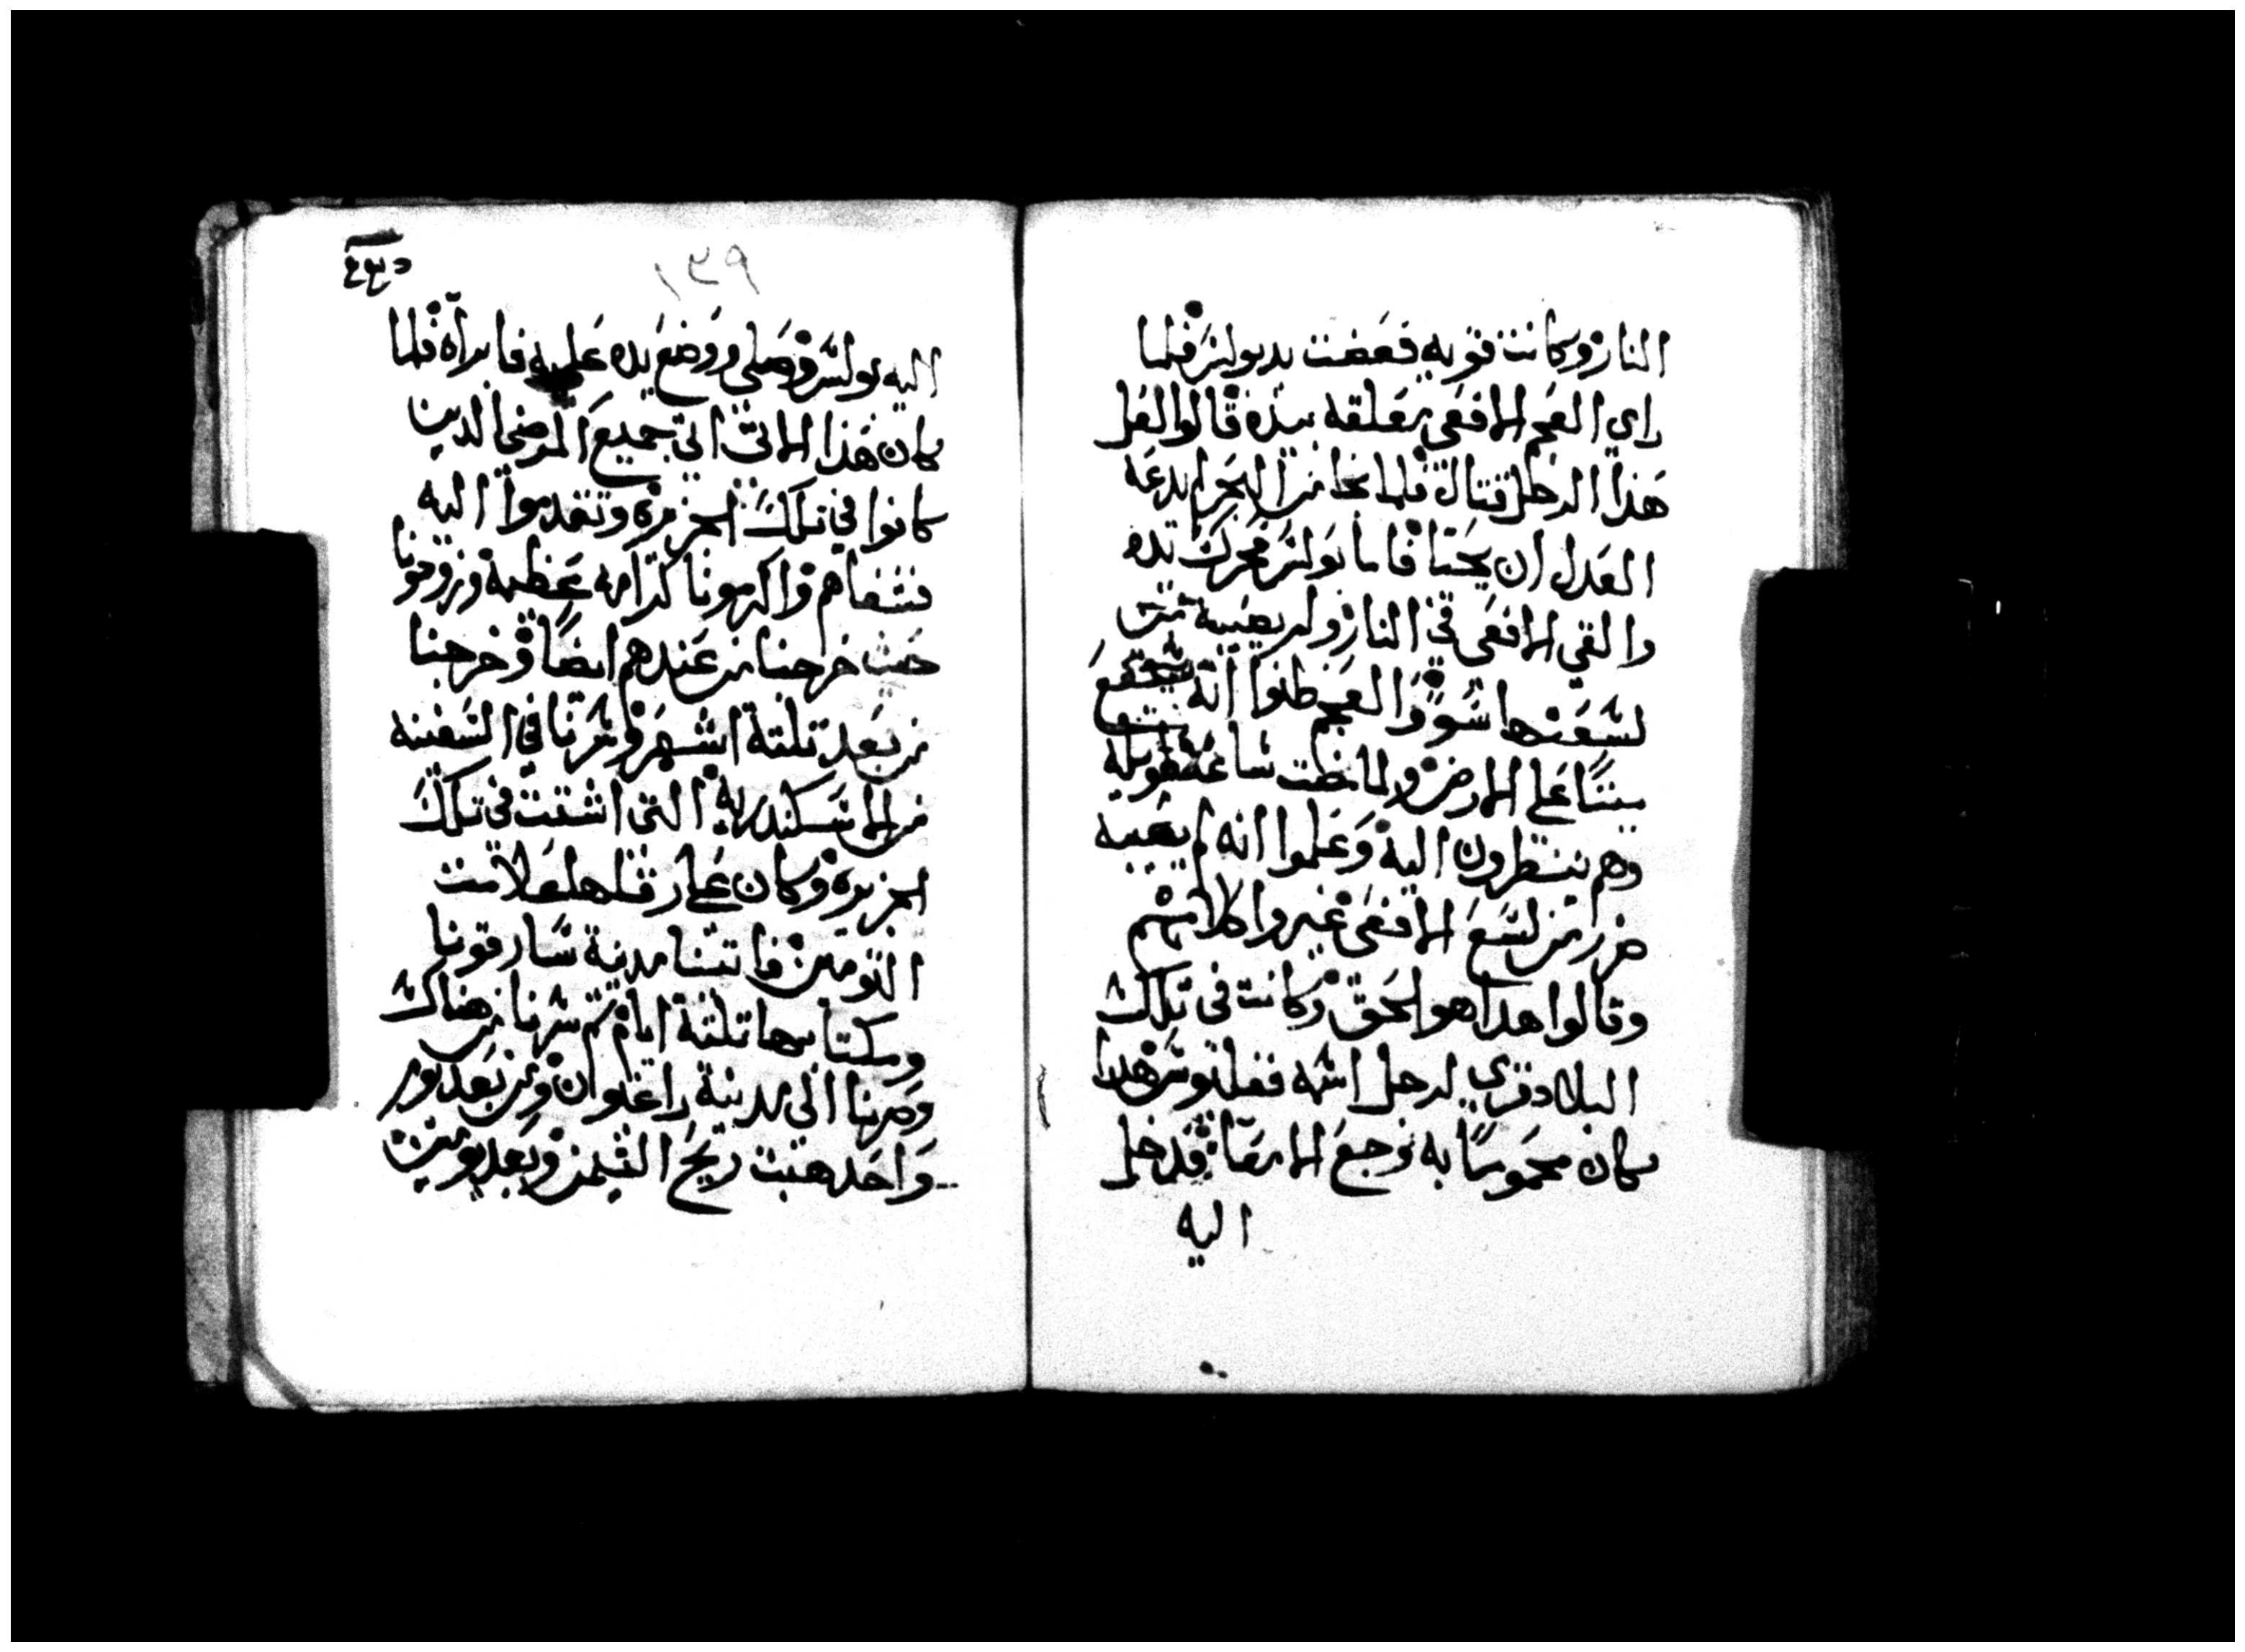 النار وكانت قويه فعضت يد بولس فلما
راي العجم الافعي معلقه بيده قالوا لعل
هذا الرجل قتال فلما نجا من البحر لم يدعه
العدل ان يحيا فاما بولس فحرك يده
والقي الافعي في النار ولم يصيبه من
لسعتها سوًو العجم ظنوا انه
ميتًا علي الارض ولما مضت ساعة طويله
وهم ينتظرون اليه وعلموا انه لم يصيبه
ضرر من لسع الافعي غيروا كلامهم
وقالوا هدا هو الحق وكانت في تلك
البلاد قري لرجل اسمه هدا
كان محمومًا به وجع الامعآ فدخل
اليه
١٣٩
اليه بولس وصلي ووضع يده عليه فابراه فلما
كان هذا الاتي اتي جميع المرضي الدين
كانوا في تلك الجزيره وتقدموا اليه
فشفاهم واكرمونا كرامه عظيمة وزودونا
حيث خرجنا من عندهم ايضًا وخرجنا
من بعد تلتة اشهر وسرنا في السفينه
من الاسكندريه التي اشتت في تلك
الجزيره وكان علامت
التومين فاتينا مدينة ساراقونا
ومكتنا بها تلتة ايام تم سرنا من هناك
وصرنا الي مدينة راغيوان ومن بعد يوم
واحد هبت ريح التيمن وبعد يومين